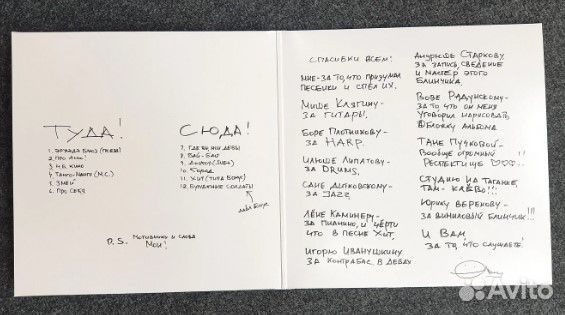 Туда!
1. Эркада Блюз (
2. Про Анну!
3. Не кино
4. Танго-Манго (М.С.)
5. Змей
6. Про себя
Сюда!
7. Где ты, ми дева
8. Ваб-Баб
9. Диалог (Dub)
10. Город
11. Хит (типа бонус)
12. Бумажные солдаты
P.S. Мотивчики и слова
Мои!
Спасибки всем!
Мне - за то, что придумал
песенки и спел их.
Мише Клягину -
за гитары,
Боре Плотникову -
за HARP.
Илюше Липатову -
за DRUMS,
Сане Дитковскому -
за JAZZ
Лёне Каминеру -
за пианино, и черти
что в песне Хит,
Игорю Иванушкину
за контрабас в дебах
Андрюхе Старкову
за запись, сведение
и мастер этого
блинчика
Вове Радунскому -
за то, что он меня
уговорил нарисовать
обложку альбома
Тане Пучковой -
вообще огромный
респектище ♡♡♡!
Студию на Таганке,
там - клёво!!!
Юрику Веренову -
за виниловый блинчик!!!
и Вам
за то, что слушаете!
Avito